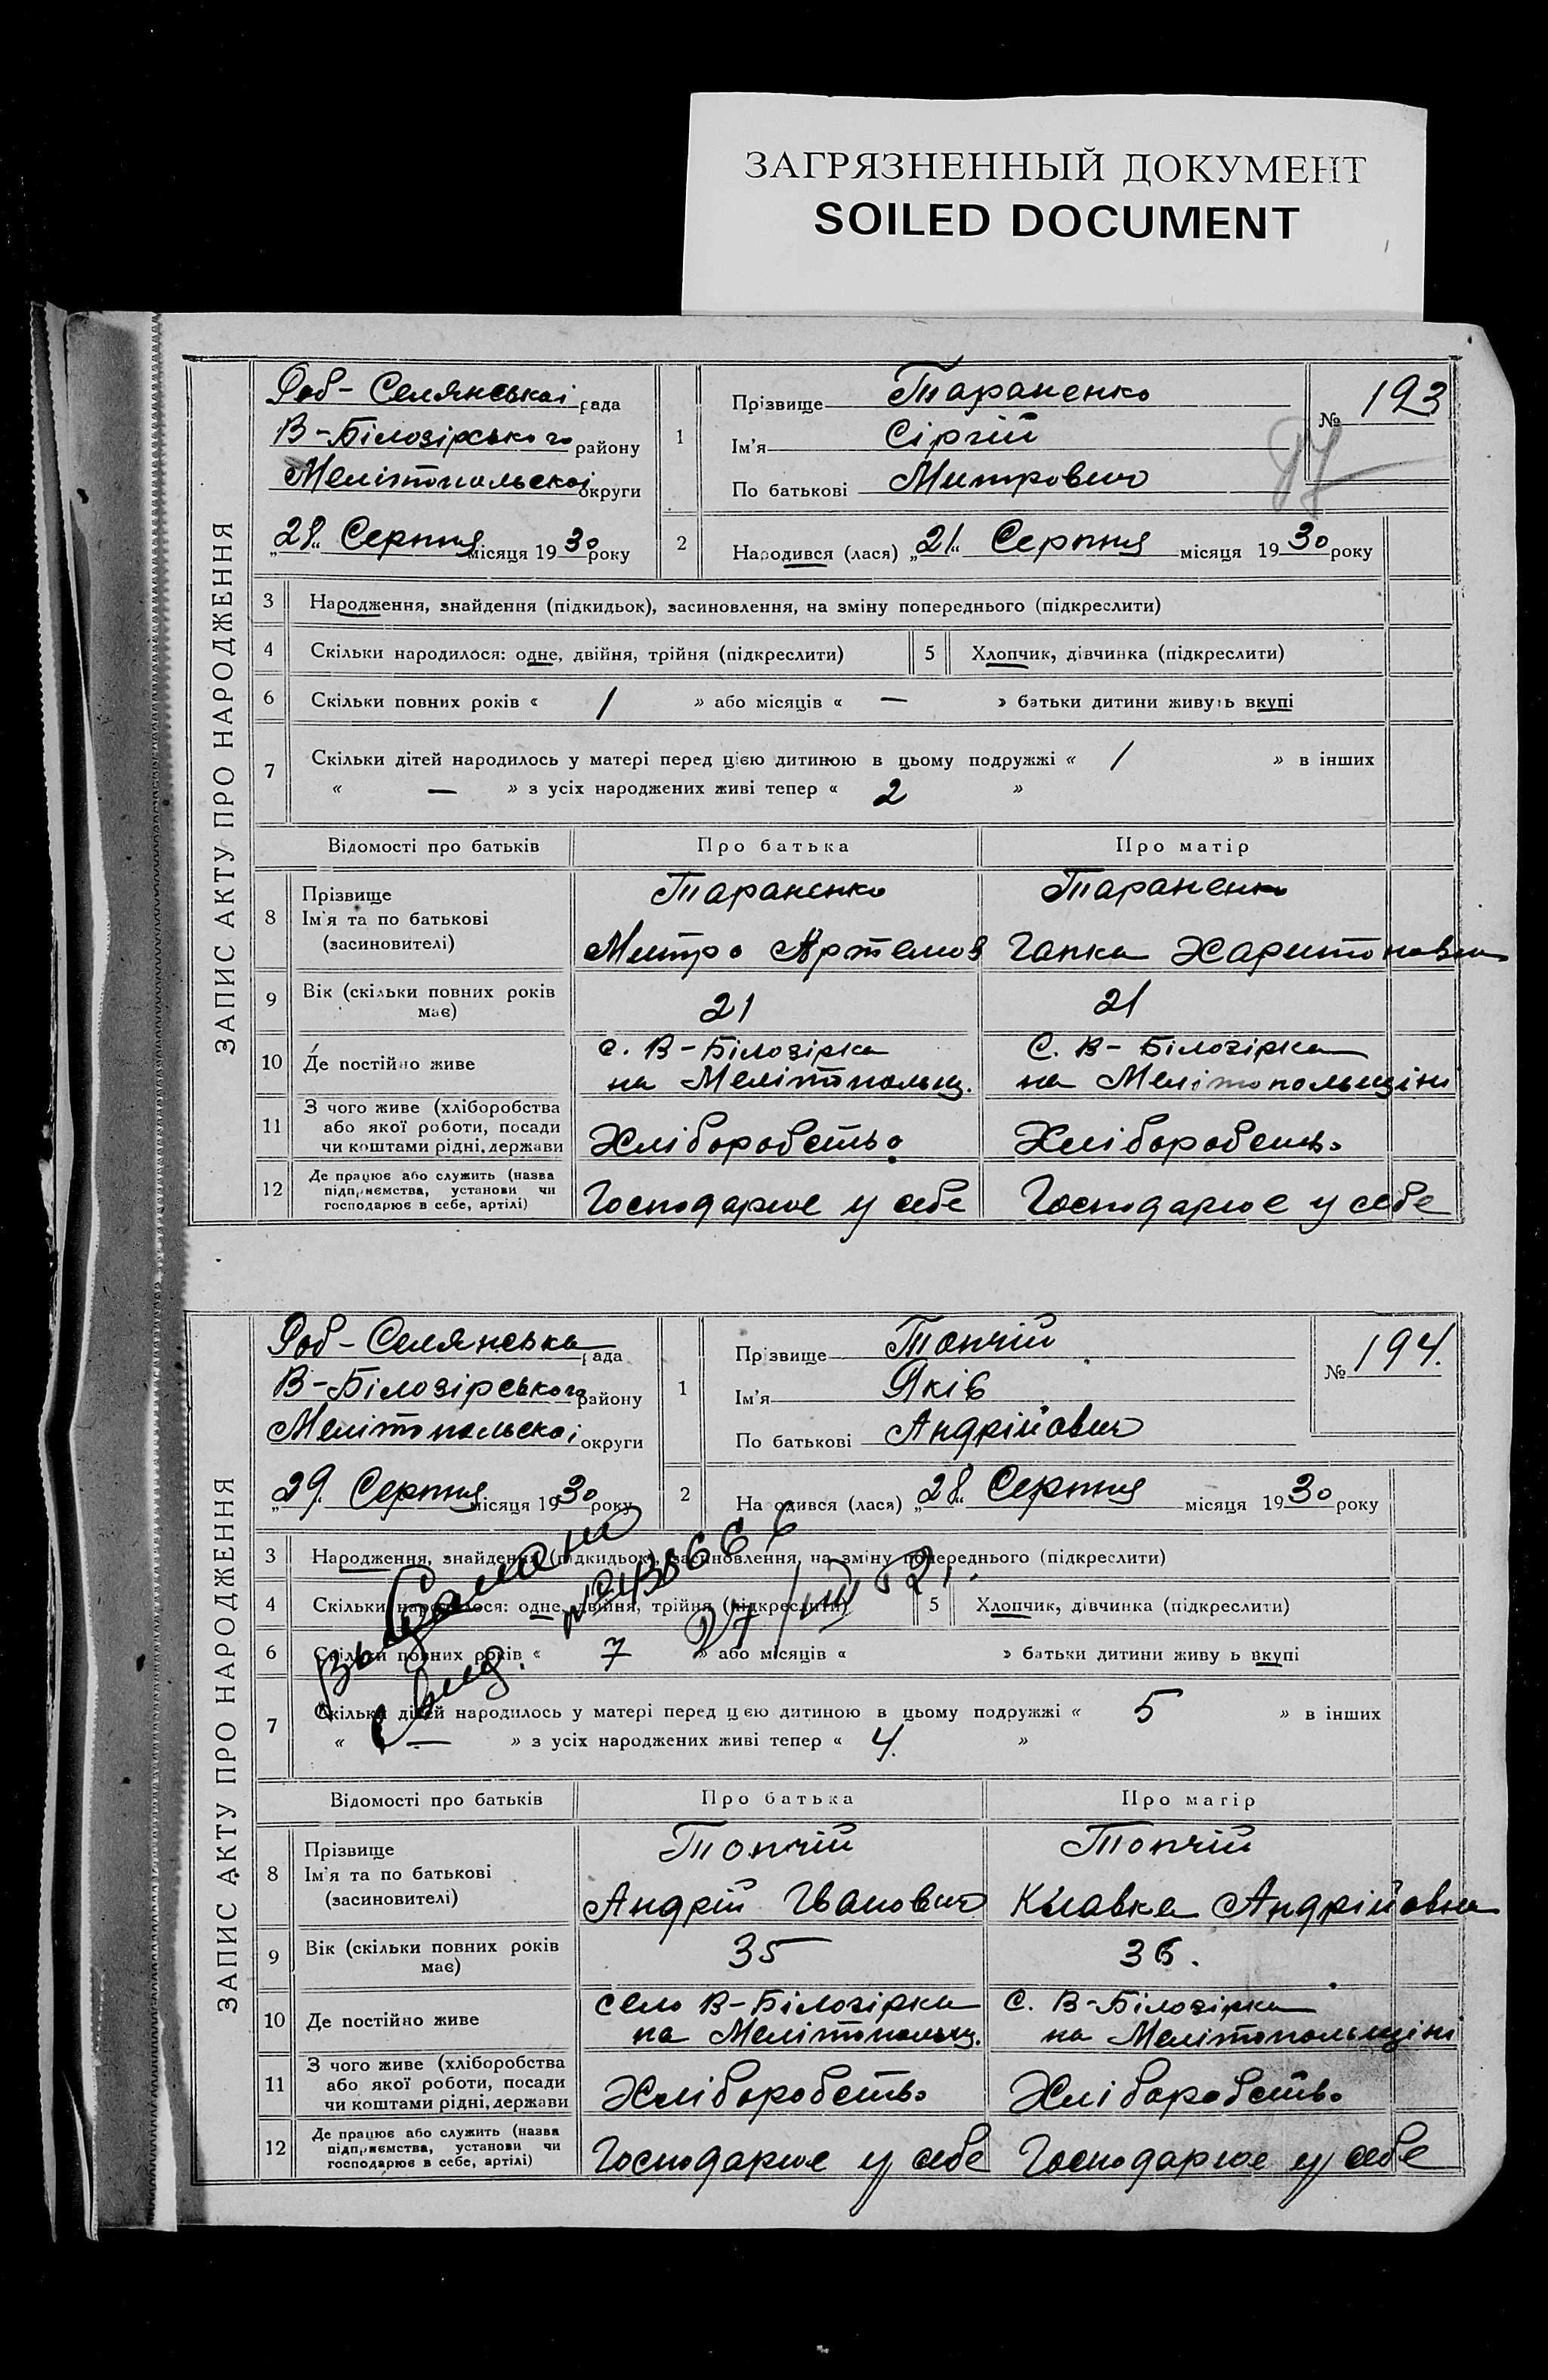 ЗАГРЯЗНЕННЫЙ ДОКУМЕНТ
SOILED DOCUMENT
ЗАПИС АКТУ ПРО НАРОДЖЕННЯ
Роб-Селянської рада
В-Білозірського району
Мелітопольскоі округи
„28“ Серпня місяця 1930 року
1
Прізвище Тараненко
Ім'я Сіргій
По батькові Митрович
№ 193
2
Народився (лася) „21“ Серпня місяця 1930 року
3 Народження, знайдення (підкидьок), засиновлення, на зміну попереднього (підкреслити)
4 Скільки народилося: одне, двійня, трійня (підкреслити) 5 Хлопчик, дівчинка (підкреслити)
6 Скільки повних років « 1 » або місяців « — » батьки дитини живуть вкупі
7 Скільки дітей народилось у матері перед цією дитиною в цьому подружжі « 1 » в інших
« — » з усіх народжених живі тепер « 2 »
Відомості про батьків Про батька Про матір
8 Прізвище
Ім'я та по батькові
(засиновителі)
Тараненко
Митро Артемов
Тараненко
Гапка Харитоновна
9 Вік (скільки повних років
має)
21 21
10 Де постійно живе
с. В-Білозірка
на Мелітопольщ.
С. В-Білозірка
на Мелітопольщіні
11 З чого живе (хліборобства
або якої роботи, посади
чи коштами рідні, держави
Хліборобством Хліборобством
12 Де працює або служить (назва
підприємства, установи чи
господарює в себе, артілі)
Господарює у себе Господарює у себе
ЗАПИС АКТУ ПРО НАРОДЖЕННЯ
Роб-Селянська рада
В-Білозірського району
Мелітопольскоі округи
„29“ Серпня місяця 1930 року
1
Прізвище Топчій
Ім'я Яків
По батькові Андрійович
№ 194.
2
Народився (лася) „28“ Серпня місяця 1930 року
3 Народження, знайдення (підкидьок), засиновлення, на зміну попереднього (підкреслити)
4 Скільки народилося: одне, двійня, трійня (підкреслити) 5 Хлопчик, дівчинка (підкреслити)
6 Скільки повних років « 7 » або місяців « » батьки дитини живуть вкупі
7 Скільки дітей народилось у матері перед цією дитиною в цьому подружжі « 5 » в інших
« — » з усіх народжених живі тепер « 4. »
Відомості про батьків Про батька Про матір
8 Прізвище
Ім'я та по батькові
(засиновителі)
Топчій
Андрій Іванович
Топчій
Клавка Андрійовна
9 Вік (скільки повних років
має)
35 36.
10 Де постійно живе
село В-Білозірка
на Мелітопольщ.
С. В-Білозірка
на Мелітопольщіні
11 З чого живе (хліборобства
або якої роботи, посади
чи коштами рідні, держави
Хліборобство Хліборобство
12 Де працює або служить (назва
підприємства, установи чи
господарює в себе, артілі)
Господарює у себе Господарює у себе